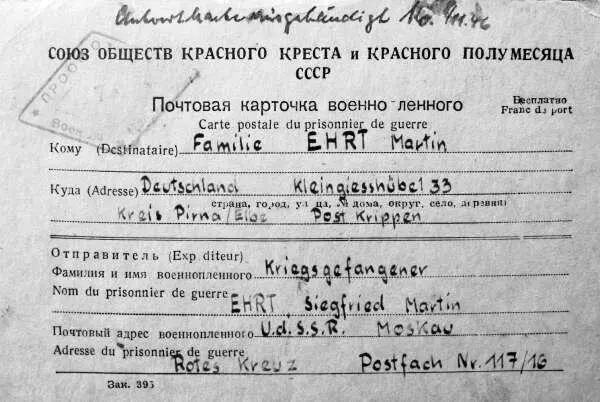 Antwortkarte ausgehändigt 10. VII. 46
СОЮЗ ОБЩЕСТВ КРАСНОГО КРЕСТА и КРАСНОГО ПОЛУМЕСЯЦА
СССР
Почтовая карточка военно ленного
Бесплатно
Carte postale du prisonnier de guerre
Franc de port
Кому (Destinataire) Familie EHRT Martin
Куда (Adresse) Deutschland Kleingiesshübel 33
страна, город, улица, № дома, округ, село, деревня
Kreis Pirna/Elbe Post Krippen
Отправитель (Exp diteur)
Фамилия и имя военнопленного Kriegsgefangener
Nom du prisonnier de guerre
EHRT Siegfried Martin
Почтовый адрес военнопленного U.d.S.S.R. Moskau
Adresse du prisonnier de guerre
Rotes Kreuz Postfach Nr. 117/16
Зак. 395